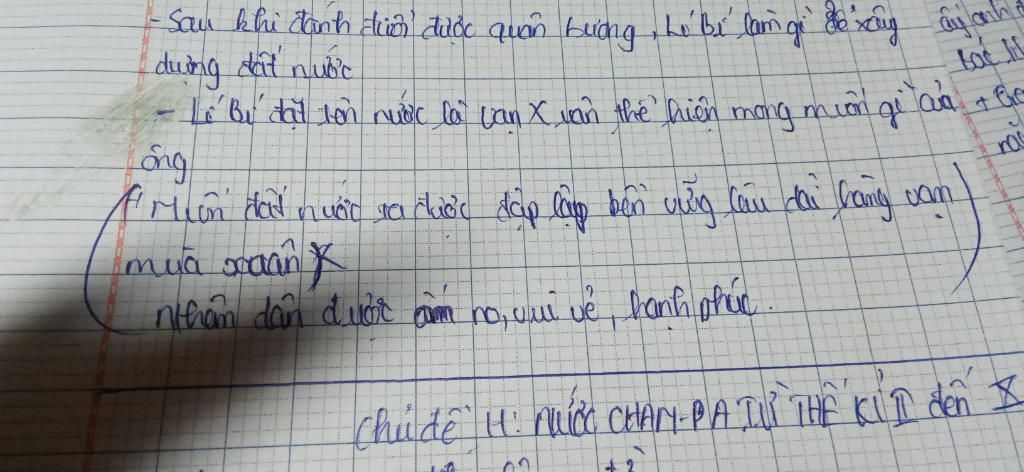 - Sau khi đánh đuổi được quân Lương, Lí Bí làm gì để xây
dựng đất nước
- Lí Bí đặt tên nước là vạn Xuân thể hiện mong muốn gì của
ông
Muốn đất nước ta được độc lập bền vững lâu dài hàng vạn
mùa xuân
nhân dân được ấm no, vui vẻ, hạnh phúc.
Chủ đề 4: NƯỚC CHAM-PA TỪ THẾ KỈ II đến X